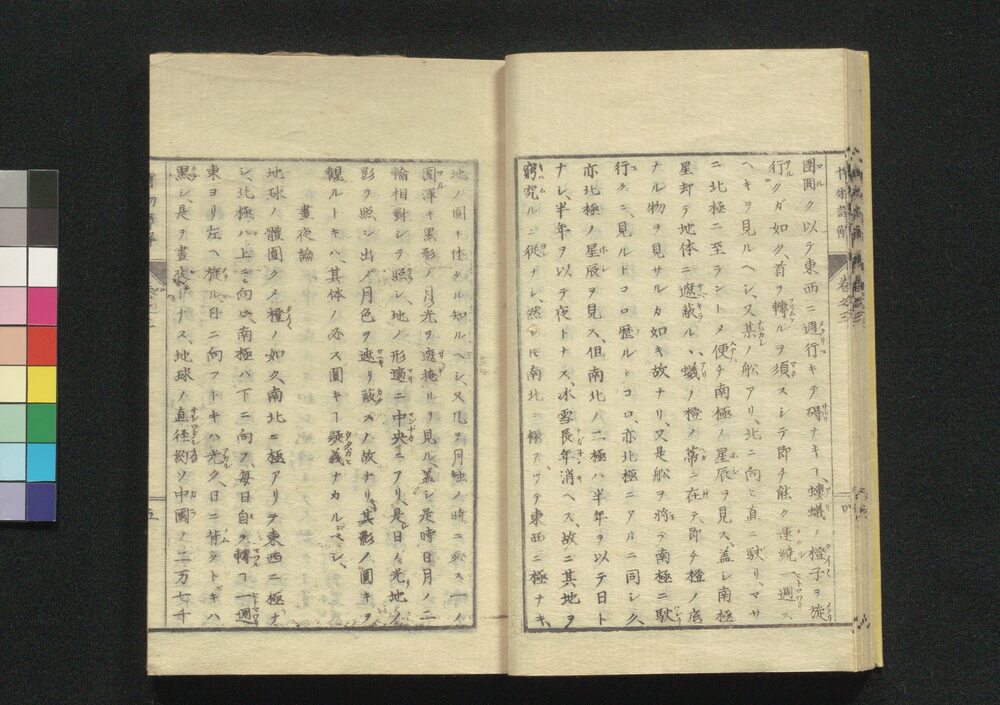 圑圓ク以テ東西ニ週行キテ碍ナキヿ螻蟻ノ橙子ヲ旋
行クガ如ク、首ヲ轉ルヲ須スシテ即チ能ク連繞一週ス
ヘキヲ見ルヘシ、又某ノ船アリ、北ニ向ヒ直ニ駛リ、マサ
ニ北極ニ至ラントメ便チ南極ノ星辰ヲ見ス、盖シ南極
星却テ地体ニ遮蔽ル、蟻ノ橙ノ蒂ニ在テ即チ橙ノ底
ナル物ヲ見サルカ如キ故ナリ、又是船ヲ将テ南極ニ駛
行クニ、見ルトコロ歴ルトコロ、亦北極ニアルニ同シク、
亦北極ノ星辰ヲ見ス、但南北ノ二極ハ半年ヲ以テ日ト
ナシ、半年ヲ以テ夜トナス、冰雪長年消ヘス、故ニ其地ヲ
窮究ルニ從ナシ、然レ𪜈南北ニ極アツテ東西ニ極ナキ、
地ノ圓ト体タル知ルヘシ、又凡ソ月蝕ノ時ニ必ス一ノ
圓渾キ黒影ノ月光ヲ遮掩ルヲ見ル、盖シ是時日月ノ二
輪相對シテ照シ、地ノ形適ニ中央ニアリ、是日ノ光地ノ
影ヲ照シ出メ月色ヲ遮リ蔽スノ故ナリ、其影ノ圓キヲ
観ルトキハ、其体ノ必ス圓キヿ疑義ナカルベシ、
晝夜論
地球ノ體圓クメ橙ノ如ク、南北ニ極アリテ東西ニ極ナ
シ、北極ハ上ニ向ヒ南極ハ下ニ向フ、毎日自ラ轉ヿ一週
東ヨリ左ヘ旋ル、日ニ向フトキハ光ク、日ニ背クトキハ
黒シ、是ヲ晝夜トナス、地球ノ直径約ソ中國ノ二万七千